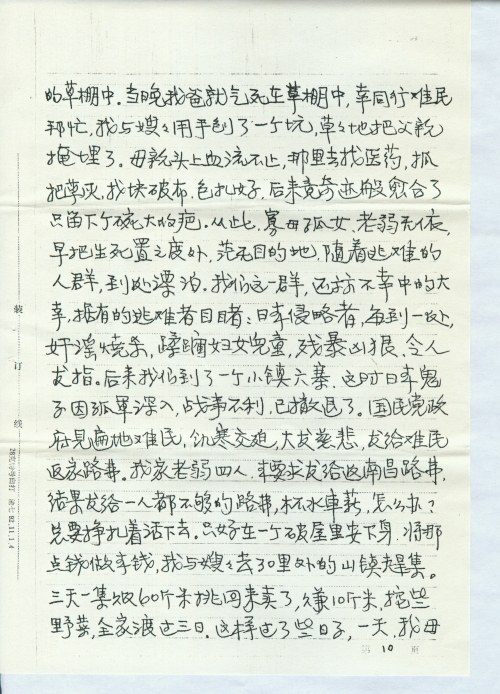 的草棚中。当晚我爸就气死在草棚中，幸同行难民
帮忙，我与嫂々用手刨了一个坑，草々地把父亲
掩埋了。母亲头上血流不止，那里去找医药，抓
把草灰，找块破布，包扎好，后来竟奇迹般愈合了
只留下个碗大的疤。从此，寡母孤女，老弱无依，
早把生死置之度外，茫无目的地，随着逃难的
人群，到处漂泊。我们这一群，还算不幸中的大
幸，据有的逃难者目睹：日本侵略者，每到一处，
奸淫烧杀，蹂躏妇女儿童，残暴凶狠，令人
发指。后来我们到了一个小镇六寨，这时日本鬼
子因孤军深入，战事不利，已撤退了。国民党政
府见遍地难民，饥寒交迫，大发慈悲，发给难民
返家路费。我家老弱四人，要求发给返南昌路费，
结果发给一人都不够的路费，杯水车薪，怎么办？
只要挣扎着活下去。只好在一个破屋里安下身，将那
点钱做本钱，我与嫂々去70里外的山镇赶集。
三天一集，收60斤米挑回来卖了，赚10斤米，挖些
野菜，全家渡过三日。这样过了些日子，一天，我母
第 10 页
装
订
线